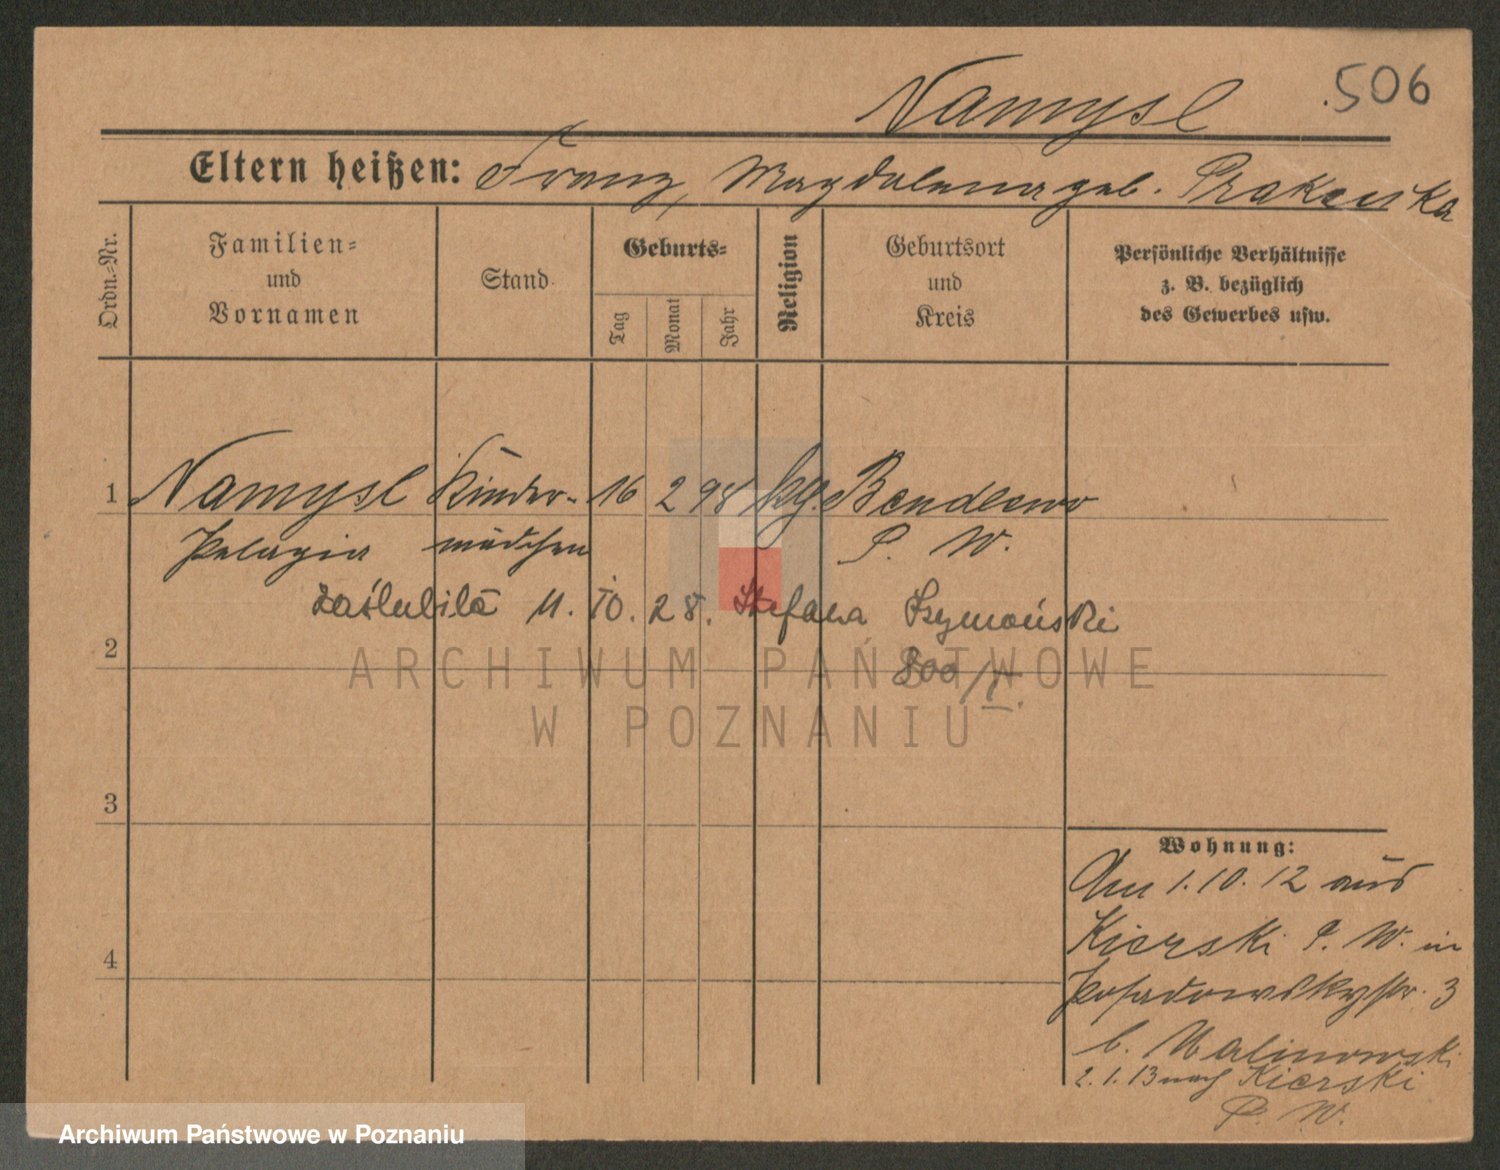 Namysl .506
Eltern heißen: Franz, Magdalena geb.
Ordn.-Nr. Familien- und Vornamen Stand Geburts- Tag Monat Jahr Religion Geburtsort und Kreis Persönliche Verhältnisse z. B. bezüglich des Gewerbes usw.
1 Namysl Kinder- 16 2 98 Bendlewo
Pelagia mädchen P. W.
zaślubiła 11. 10. 28. Stefana Szymański
2
800/
ARCHIWUM PAŃSTWOWE
W POZNANIU
3
Wohnung:
Am 1.10.12 aus
Kierski P. W. in
4
Posadowskystr. 3
b. Malinowski
2.1.13 nach Kierski
P. W.
Archiwum Państwowe w Poznaniu